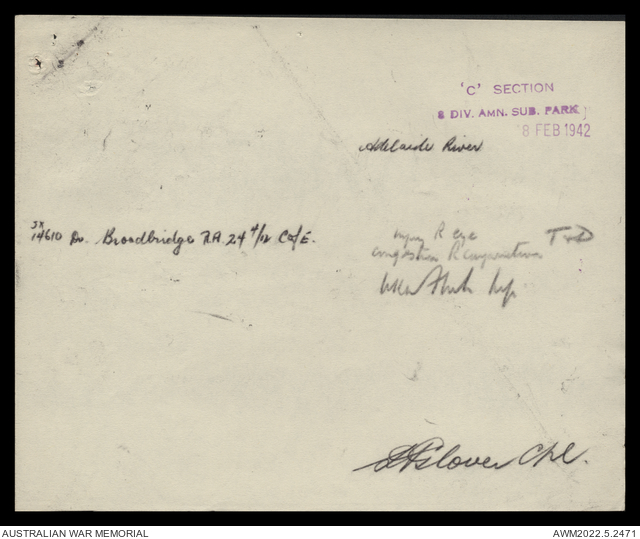 'C' SECTION
8 DIV. AMN. SUB. PARK
8 FEB 1942
Adelaide River
SX
14610 Dr. Broadbridge R.A. 24 4/12 C of E.
injury R eye T+D
congestion R conjunctiva
Glover Cpl.
AUSTRALIAN WAR MEMORIAL
AWM2022.5.2471